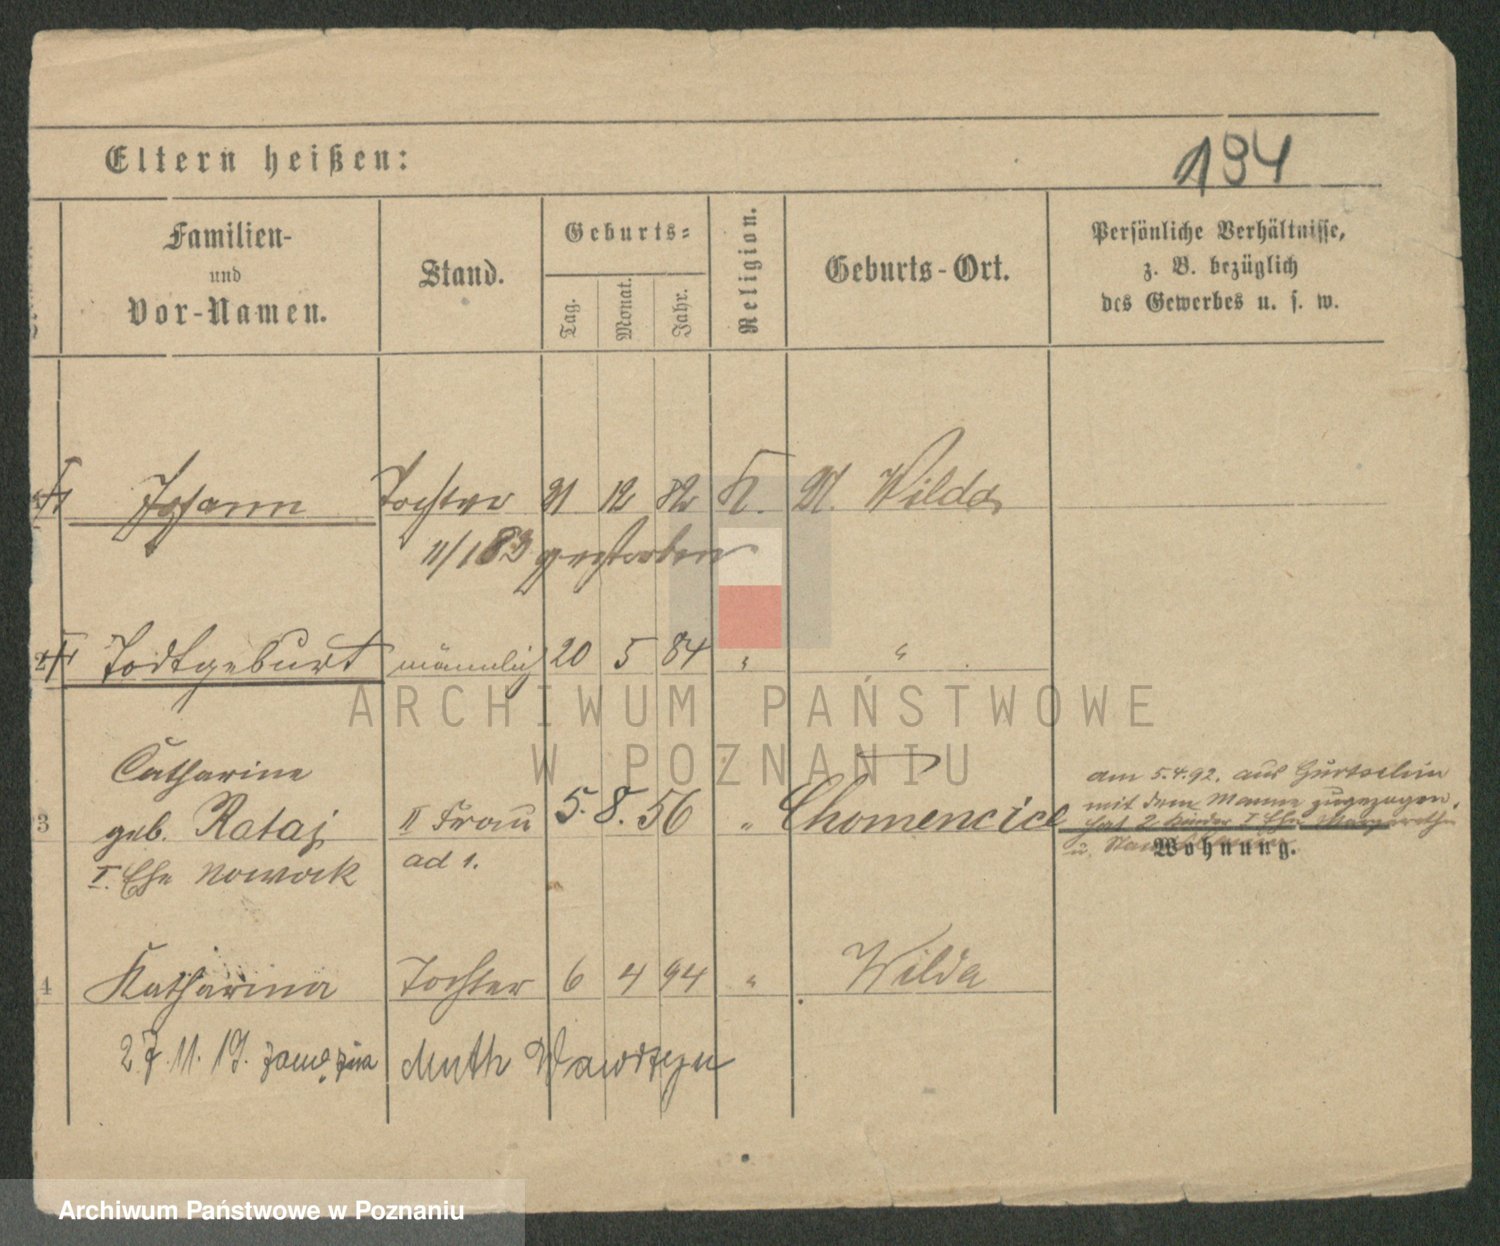 Eltern heißen:
194
Familien-
und
Vor-Namen.
Stand.
Geburts-
Tag.
Monat.
Jahr.
Religion.
Geburts-Ort.
Persönliche Verhältnisse,
z. B. bezüglich
des Gewerbes u. s. w.
Johann Tochter 21 12 82 K. U. Wilda
11/1 83 gestorben
2 Todtgeburt männlich 20 5 84 " "
Catharine
3 geb. Rataj II Frau 5. 8. 56 " Chomencice
I. Ehe Nowack ad 1.
am 5.4.92. aus Gurtschin
mit dem Manne zugezogen.
hat 2 Kinder I Ehe
u.
Wohnung.
4 Katharina Tochter 6 4 94 " Wilda
27.11.19. Muth Wawrzyn
ARCHIWUM PAŃSTWOWE
W POZNANIU
Archiwum Państwowe w Poznaniu